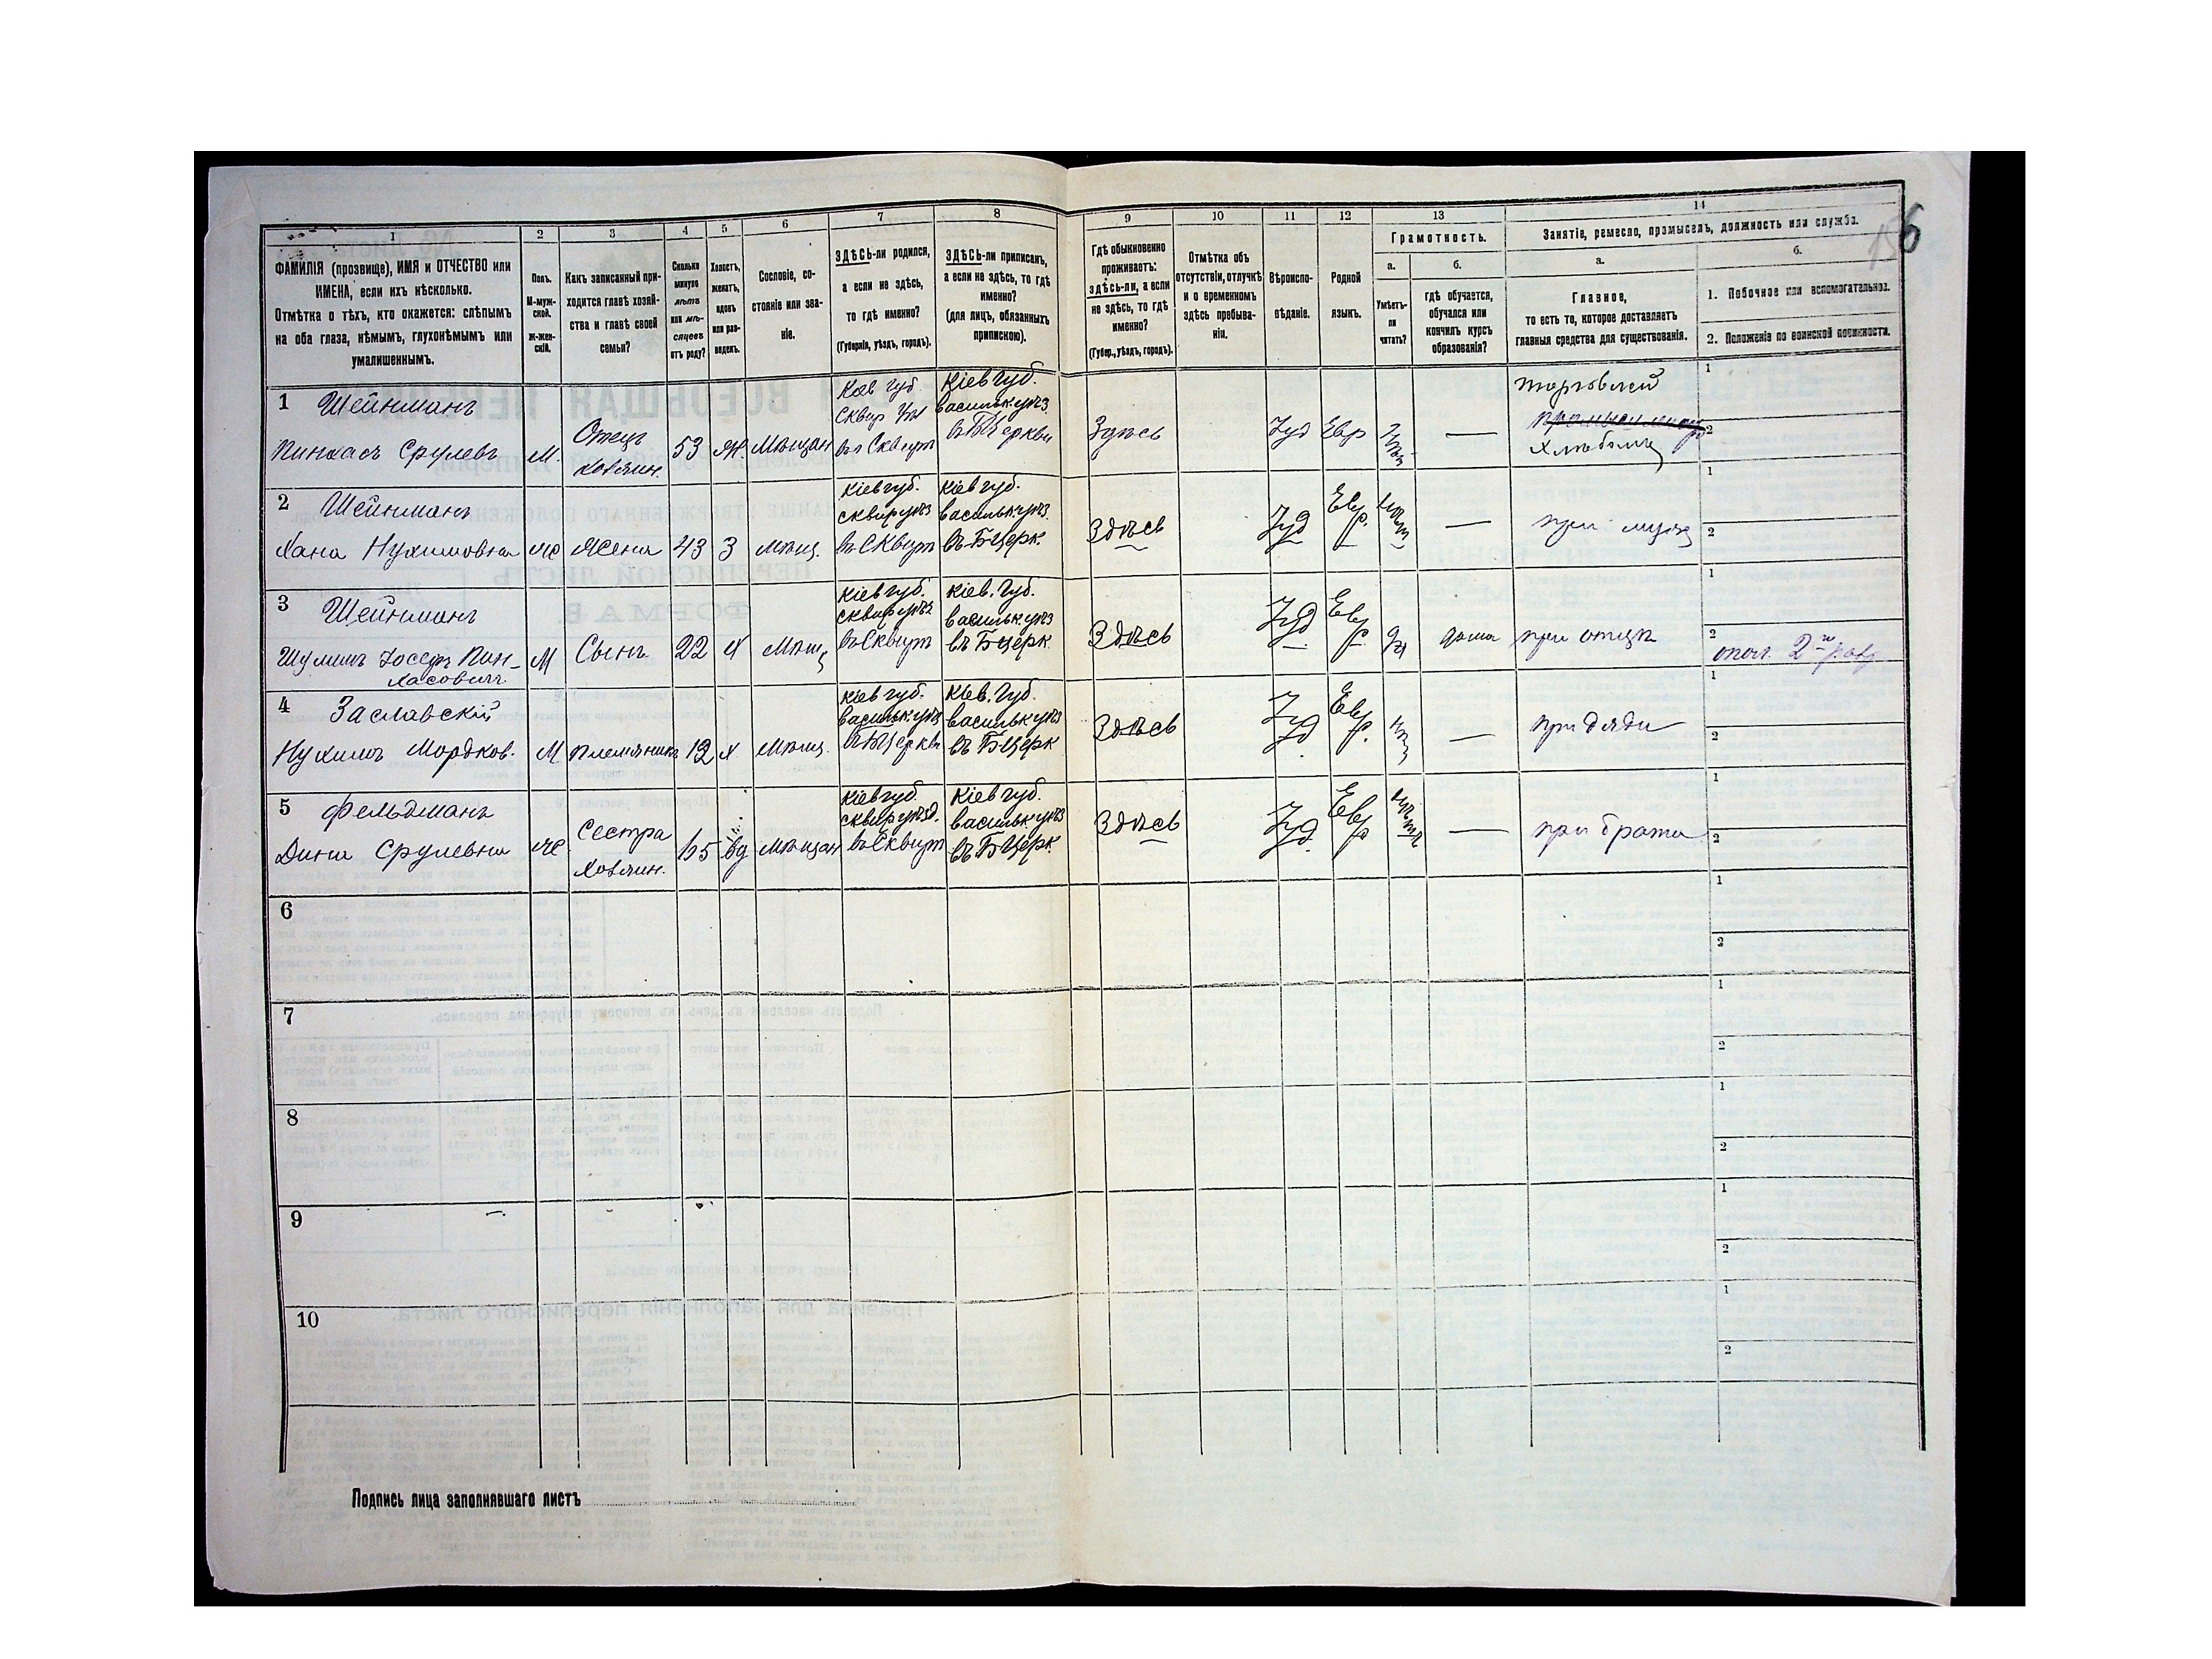 6
1 2 3 4 5 6 7 8 9 10 11 12 13 14
ФАМИЛІЯ (прозвище), ИМЯ и ОТЧЕСТВО или
ИМЕНА, если ихъ нѣсколько.
Отмѣтка о тѣхъ, кто окажется: слѣпымъ
на оба глаза, нѣмымъ, глухонѣмымъ или
умалишеннымъ.
Полъ.
М-муж-
ской.
Ж-жен-
скій.
Какъ записанный при-
ходится главѣ хозяй-
ства и главѣ своей
семьи?
Сколько
минуло
лѣтъ
или мѣ-
сяцевъ
отъ роду?
Холостъ,
женатъ,
вдовъ
или раз-
веденъ.
Сословіе, со-
стояніе или зва-
ніе.
ЗДѢСЬ-ли родился,
а если не здѣсь,
то гдѣ именно?
(Губернія, уѣздъ, городъ).
ЗДѢСЬ-ли приписанъ,
а если не здѣсь, то гдѣ
именно?
(для лицъ, обязанныхъ
припискою).
Гдѣ обыкновенно
проживаетъ:
здѣсь-ли, а если
не здѣсь, то гдѣ
именно?
(Губер., уѣздъ, городъ).
Отмѣтка объ
отсутствіи, отлучкѣ
и о временномъ
здѣсь пребыва-
ніи.
Вѣроиспо-
вѣданіе.
Родной
языкъ.
Грамотность.
а.
Умѣетъ-
ли
читать?
б.
гдѣ обучается,
обучался или
кончилъ курсъ
образованія?
Занятіе, ремесло, промыселъ, должность или служба.
а.
Главное,
то есть то, которое доставляетъ
главныя средства для существованія.
б.
1. Побочное или вспомогательное.
2. Положеніе по воинской повинности.
1 Шейнманъ
Пинхасъ Срулевъ
М.
Отецъ
хозяин.
53
Ж.
Мѣщан
Кіев губ.
Сквир
въ Сквирѣ
Кіев губ.
Васильк. уѣз
в Б Церкви
Здѣсь
Іуд
Евр
—
торговлей
хлѣбомъ
1
2
2 Шейнманъ
Хана Нухимовна
Ж
Жена
43
З
Мѣщ.
Кіев губ.
Сквир уѣз
въ Сквирѣ
Кіев губ.
Васильк уѣз.
въ Б Церк.
Здѣсь
Іуд
Евр.
—
при мужѣ
1
2
3 Шейнманъ
Шулимъ Іосефъ Пин-
хасовичъ
М
Сынъ
22
Х
Мѣщ
Кіев губ.
Сквир уѣз.
въ Сквирѣ
Кіев. Губ.
Васильк уѣз
въ Б Церк.
Здѣсь
Іуд
Евр.
да
дома
при отцѣ
1
2
опол. 2го разр
4 Заславскій
Нухимъ Мордков.
М
племянникъ
12
х
Мѣщ.
Кіев губ.
Васильк. уѣз
въ Б Церкви
Кіев. Губ.
Васильк уѣз
въ Б Церк
Здѣсь
Іуд.
Евр.
—
при дяди
1
2
5 Фельдманъ
Дина Срулевна
Ж
Сестра
хозяин.
65
вд
Мѣщан
Кіев губ.
Сквир уѣзд.
въ Сквирѣ
Кіев губ.
Васильк уѣз
въ Б Церк.
Здѣсь
Іуд.
Евр
—
при братѣ
1
2
6
1
2
7
1
2
8
1
2
9
1
2
10
1
2
Подпись лица заполнявшаго листъ